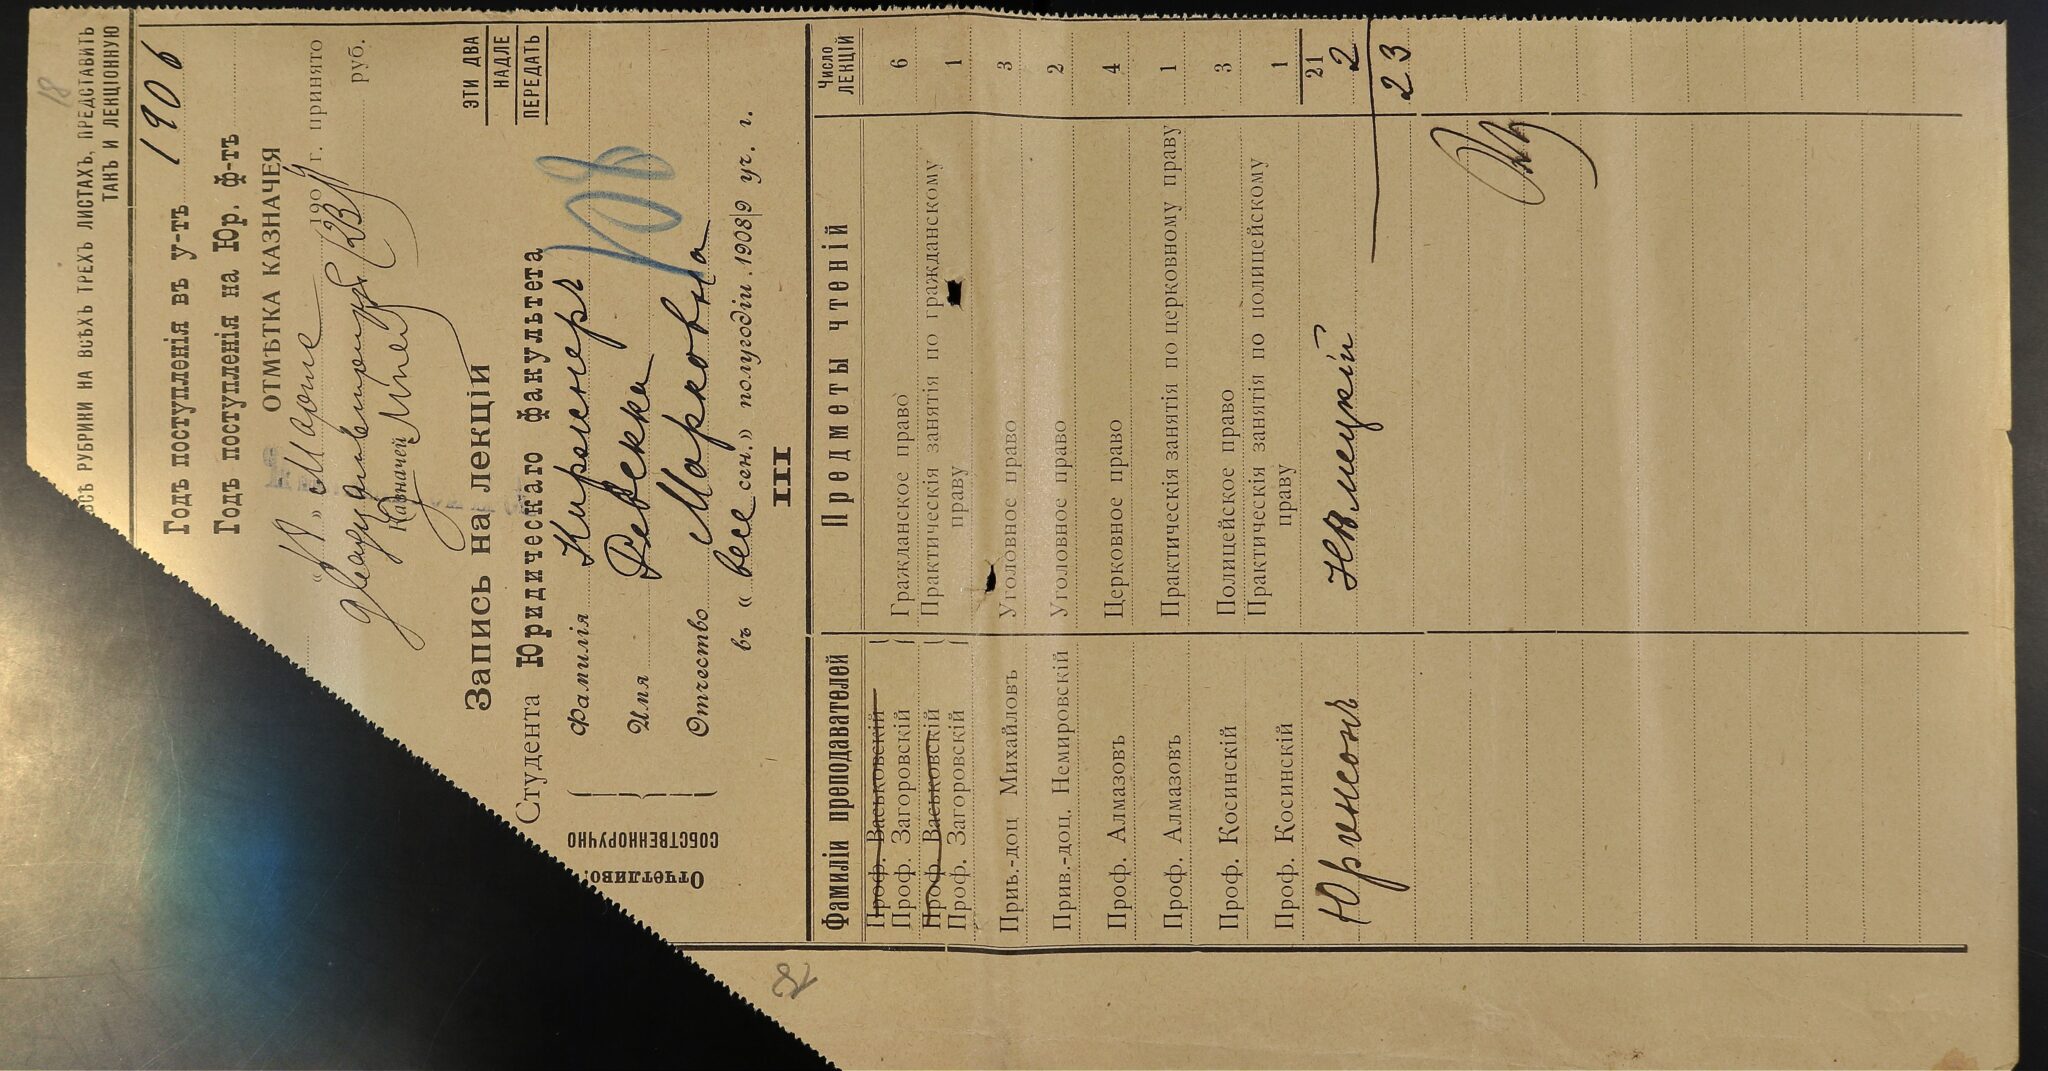 18
ВСѢ РУБРИКИ НА ВСѢХЪ ТРЕХЪ ЛИСТАХЪ, ПРЕДСТАВИТЬ
ТАКЪ И ЛЕКЦІОННУЮ
Годъ поступленія въ у-тъ 1906
Годъ поступленія на Юр. ф-тъ
ОТМѢТКА КАЗНАЧЕЯ
" Марта 190 г. принято
руб.
Казначей
Запись на лекціи
ЭТИ ДВА
НАДЛЕ
ПЕРЕДАТЬ
Студента Юридическаго факультета
Фамилія Киршнеръ
Имя Ревекка
Отчество Марковна
въ « весе сен.» полугодіи 1908/9 уч. г.
Отчетливо!
СОБСТВЕННОРУЧНО
III
Фамиліи преподавателей Предметы чтеній Число лекцій
Проф. Васьковскій
Проф. Загоровскій Гражданское право 6
Проф. Васьковскій Практическія занятія по гражданскому 1
Проф. Загоровскій праву
Прив.-доц Михайловъ Уголовное право 3
Прив.-доц. Немировскій Уголовное право 2
Проф. Алмазовъ Церковное право 4
Проф. Алмазовъ Практическія занятія по церковному праву 1
Проф. Косинскій Полицейское право 3
Практическія занятія по полицейскому
Проф. Косинскій праву 1
21
Юргенсонъ нѣмецкій 2
23
18